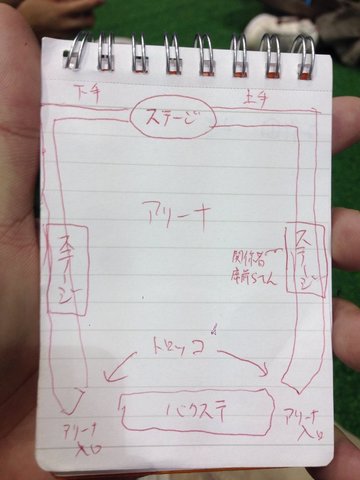 下手
上手
ステージ
アリーナ
ステージ
ステージ
関係者
トロッコ
バクステ
アリーナ
入口
アリーナ
入口